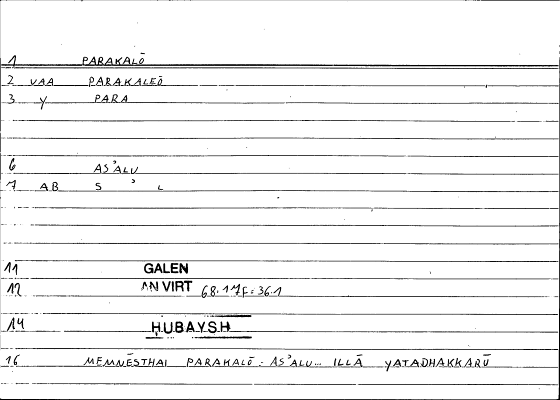 1 PARAKALŌ
2 VAA PARAKALEŌ
3 Y PARA
6 AS'ALU
7 AB S ' L
11 GALEN
12 AN VIRT 68.17f: 36.1
14 ḤUBAYSH
16 MEMNĒSTHAI PARAKALŌ : AS'ALU... ILLĀ YATADHAKKARŪ